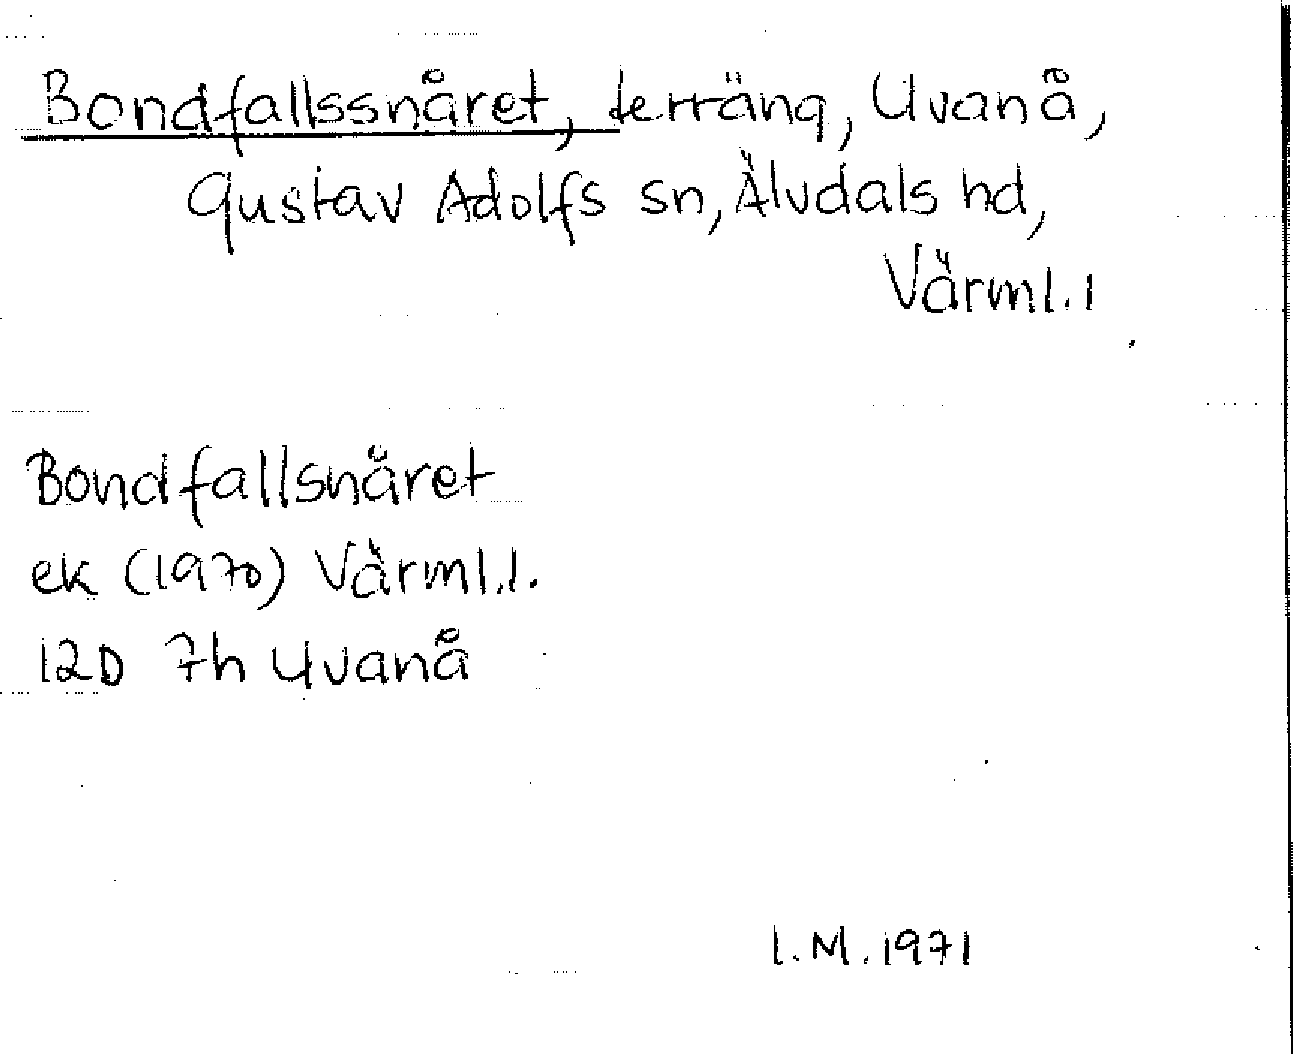 Bondfallssnåret, terräng, Uvanå,
Gustav Adolfs sn, Älvdals hd,
Värml. l
Bondfallsnåret
ek (1970) Värml.l.
12D 7h Uvanå
I.M. 1971